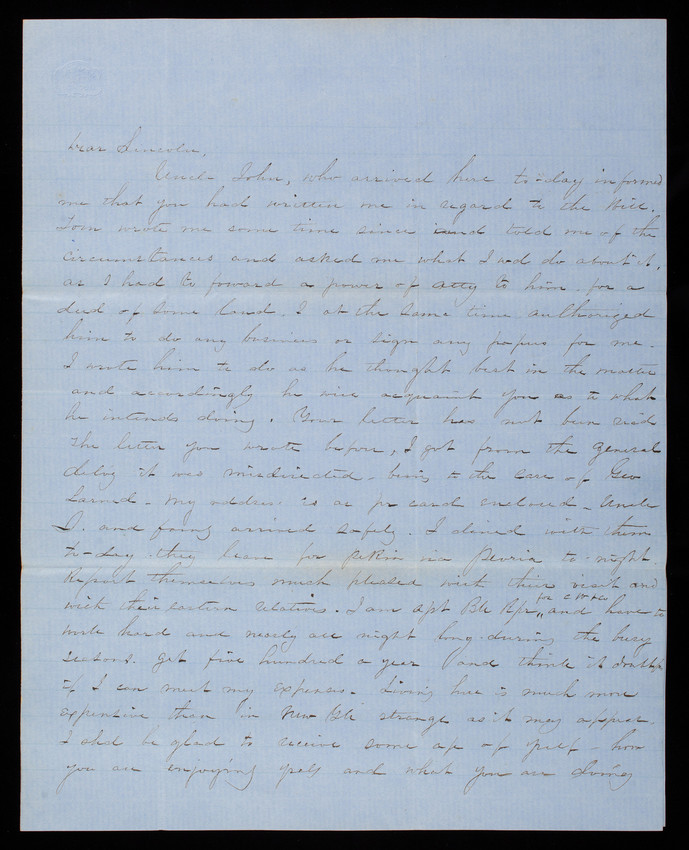 Dear Lincoln,
Uncle John, who arrived here to-day informed
me that you had written me in regard to the Will.
Tom wrote me some time since and told me of the
circumstances and asked me what I wd do about it,
as I had to forward a power of atty to him for a
deed of some land. I at the same time authorized
him to do any business or sign any papers for me.
I wrote him to do as he thought best in the matter
and accordingly he will acquaint you as to what
he intends doing. Your letter has not been recd
The letter you wrote before, I got from the general
delvy it was misdirected - being to the care of Geo
Larned - my address is as pr card enclosed - Uncle
J. and family arrived safely. I dined with them
to-day they leave for Pekin via Peoria to-night.
Report themselves much pleased with their visit and
with their eastern relatives. I am apt for and have to
work hard and nearly all night long during the busy
seasons. Get five hundred a year and think it doubtful
if I can meet my expenses. Living here is much more
expensive than in New strange as it may appear.
I shd be glad to receive some of yrself - how
you are enjoying yrself and what you are doing